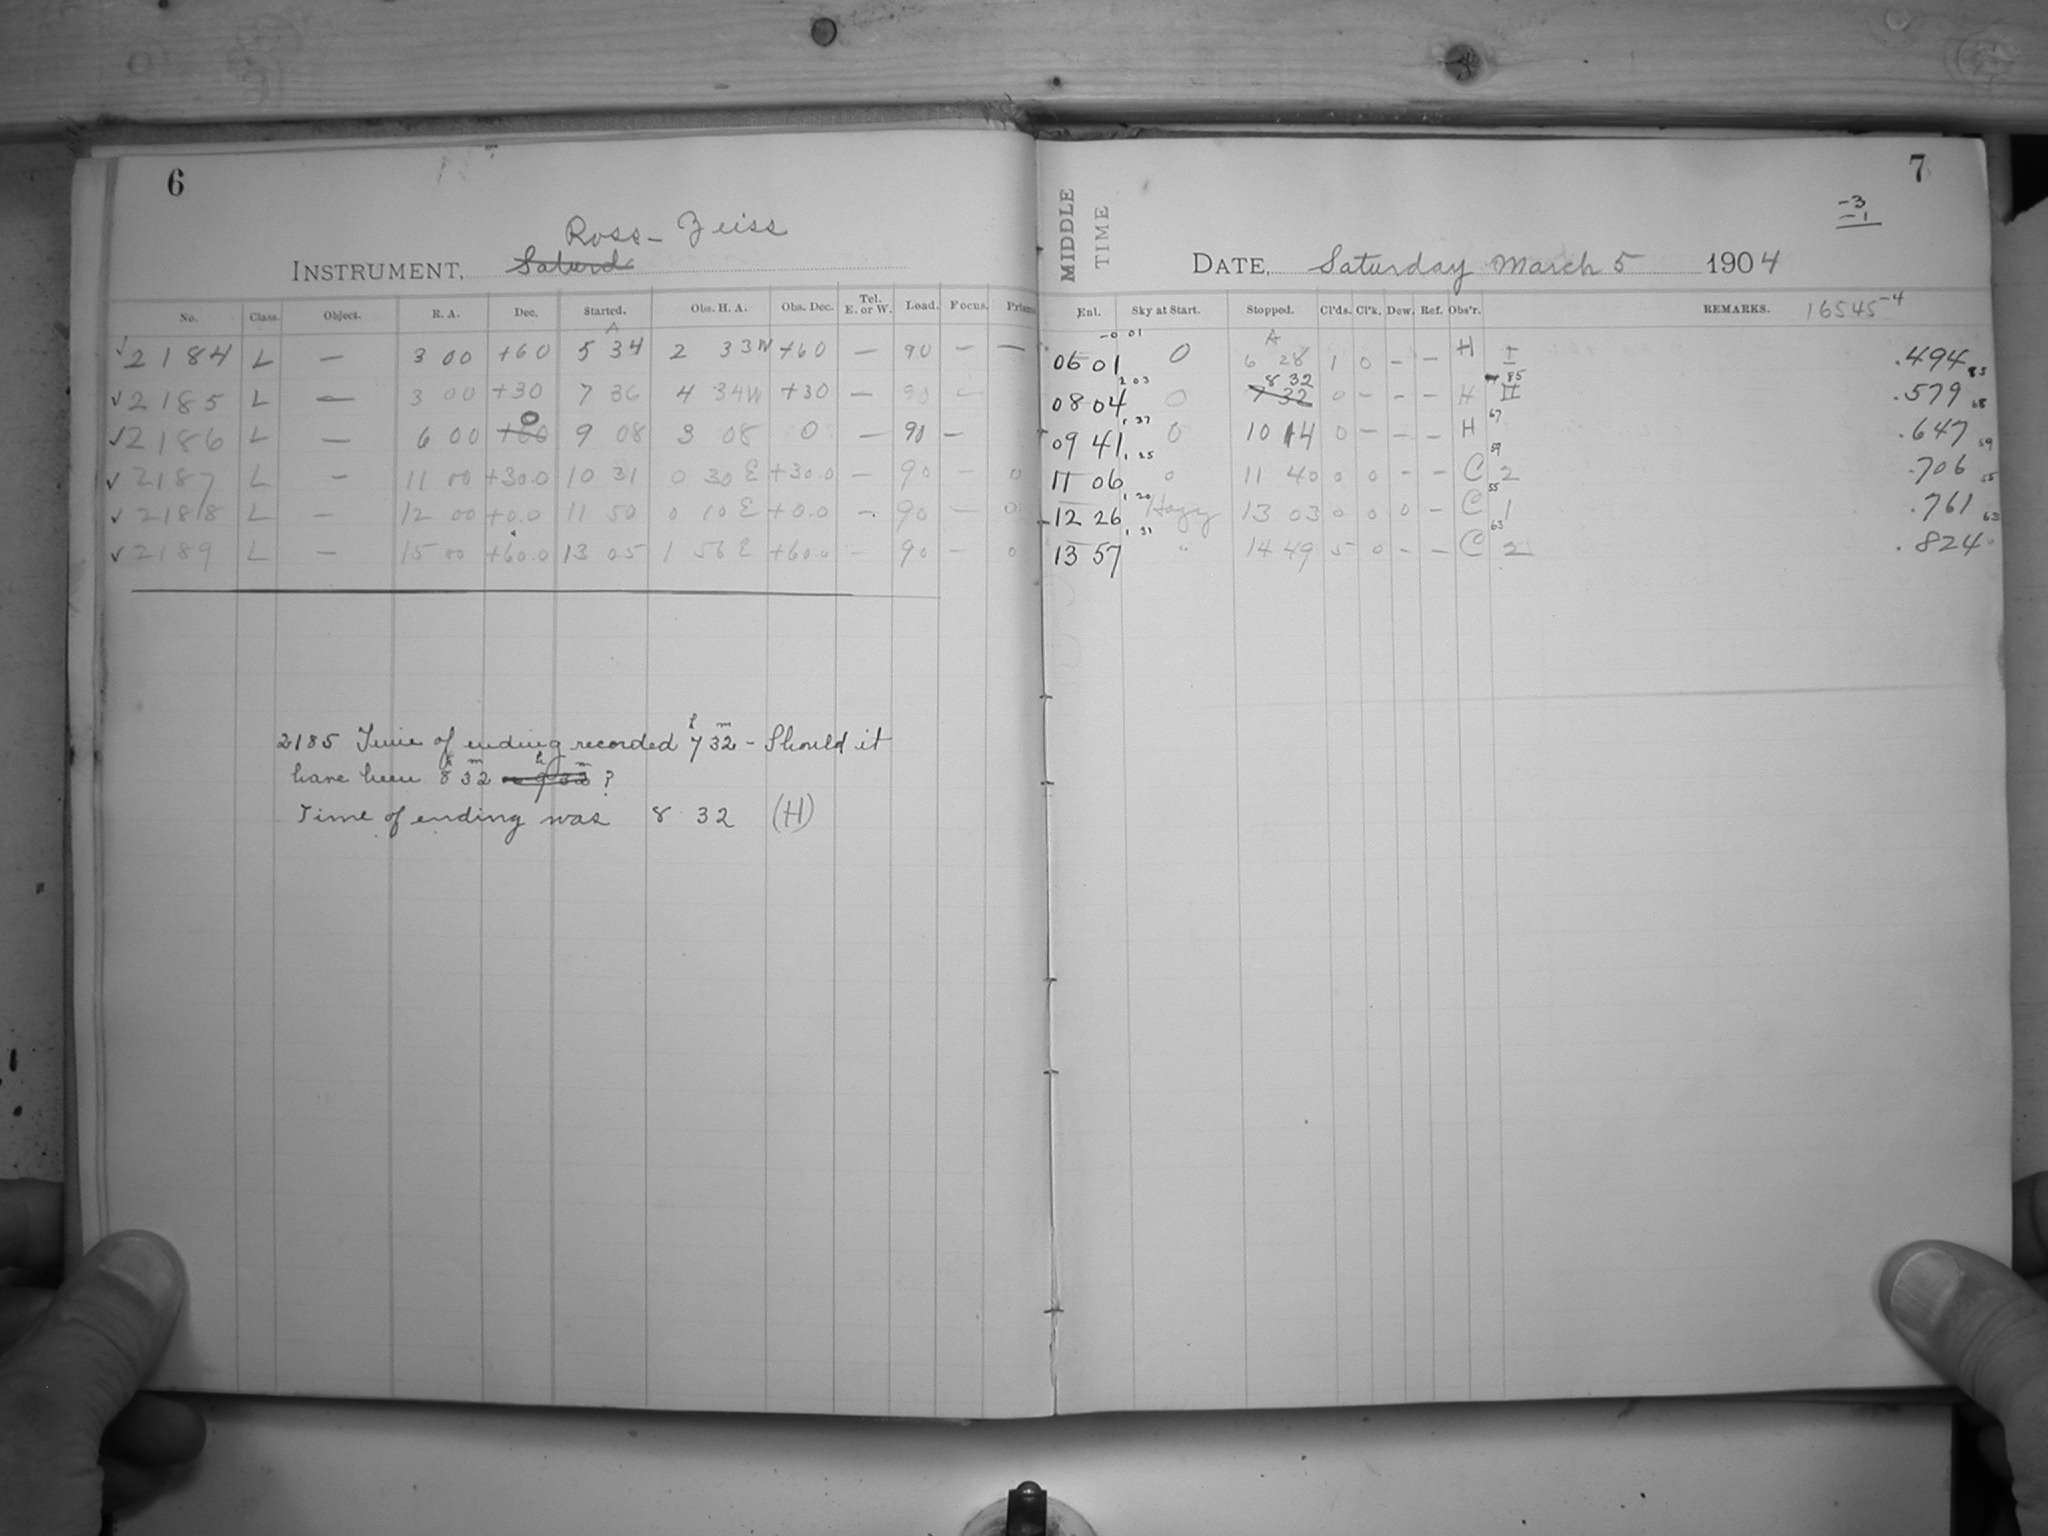 6
Ross-Zeiss
INSTRUMENT, Saturd
No. Class. Object. R. A. Dec. Started. Obs. H. A. Obs. Dec. Tel. E. or W. Load. Focus. Prism.
A
√ 2184 L — 3 00 +60 5 34 2 33W +60 — 90 — —
√ 2185 L — 3 00 +30 7 36 4 34W +30 — 90 —
0
√ 2186 L — 6 00 +60 9 08 3 08 0 — 90 —
√ 2187 L — 11 00 +30.0 10 31 0 30 E +30.0 — 90 — 0
√ 2188 L — 12 00 +0.0 11 50 0 10 E +0.0 — 90 — 0
√ 2189 L — 15 00 +60.0 13 05 1 56 E +60.0 — 90 — 0
2185 Time of ending recorded 7h 32m – Should it
have been 8h 32m ?
Time of ending was 8 32 (H)
7
MIDDLE
TIME
-3
-1
DATE, Saturday March 5 1904
Enl. Sky at Start. Stopped. Cl'ds. Cl'k. Dew. Ref. Obs'r. REMARKS. 16545 -4
-0 01 A
06 01 0 6 28 1 0 – – H I .494 85
2 03 8 32 85
08 04 0 7 32 0 – – – H II .579 68
1 37 67
09 41 0 10 14 0 – – – H .647 59
1 25 59
11 06 0 11 40 0 0 – – C 2 .706 55
1 20 55
12 26 Hazy 13 03 0 0 0 – C 1 .761 63
1 31 63
13 57 " 14 49 5 0 – – C 2 .824